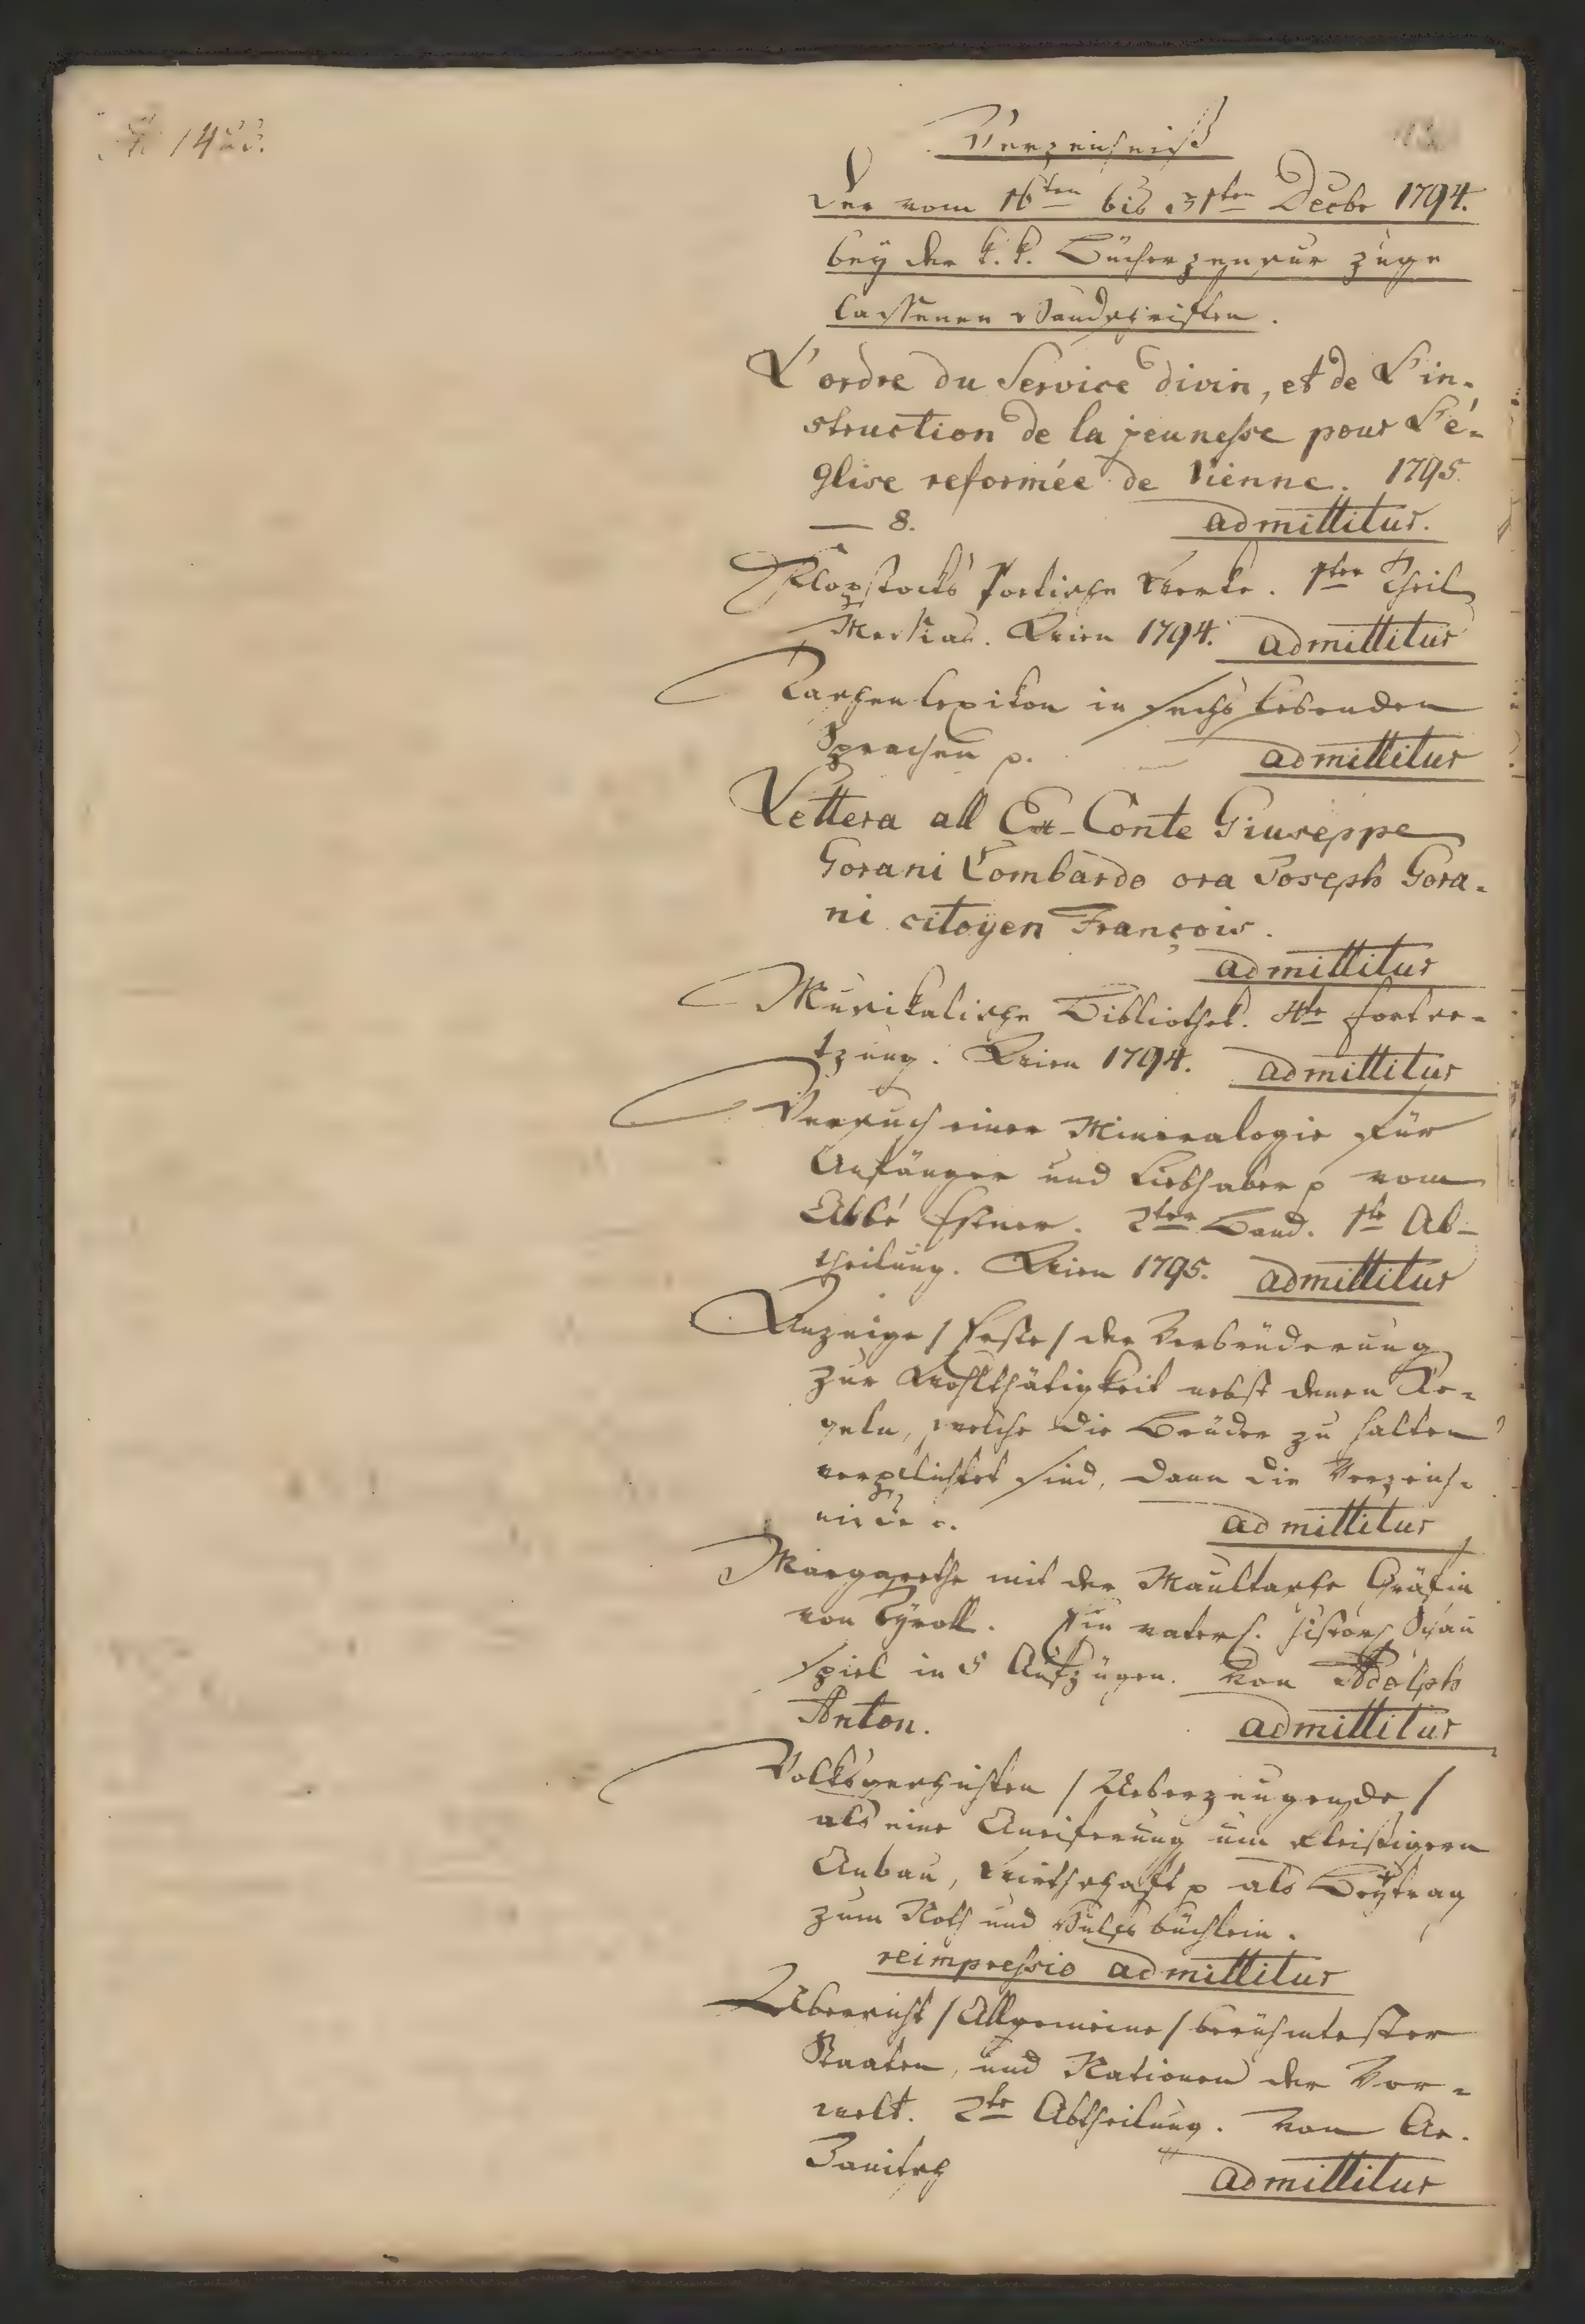 Verzeichniß
der vom 16ten bis 31ten Decbr 1794.
bey der k. k. Bücherzensur zuge
lassenen Handschriften.
L'ordre du Service divin, et de L'in-
struction de la jeunesse pour L'é-
glise reformée de Vienne. 1795.
— 8. admittitur.
Klopstocks Poetische Werke. 1ter Theil
Messias. Wien 1794. admittitur
Taschenlexikon in sechs lebenden
Sprachen p. — admittitur
Lettera all Ex-Conte Giuseppe
Gorani Lombardo ora Joseph Gora-
ni citoyen François.
admittitur
Musikalische Bibliothek. 4te Fortse-
tzung. Wien 1794. admittitur
Versuch einer Mineralogie für
Anfänger und Liebhaber p vom
Abbé Estner. 2ter Band. 1te Ab-
theilung. Wien 1795. admittitur
Anzeige / Erste / der Verbrüderung
zur Wohlthätigkeit nebst denen Re-
geln, welche die Brüder zu halten
verpflichtet sind, dann die Verzeich-
admittitur
Margarethe mit der Maultasche Gräfin
von Tyroll. Ein vaterl. histor. Schau
spiel in 5 Aufzügen. Von Adolph
Anton. admittitur
Volksgeschichten / Ueberzeugende /
als eine Aneiferung um fleißigern
Anbau, Wirthschaft p als Beytrag
zum Noth und Hülfsbüchlein.
reimpressio admittitur
Übersicht / Allgemeine / berühmtester
Staaten, und Nationen der Vor-
welt. 2te Abtheilung. Von An.
admittitur